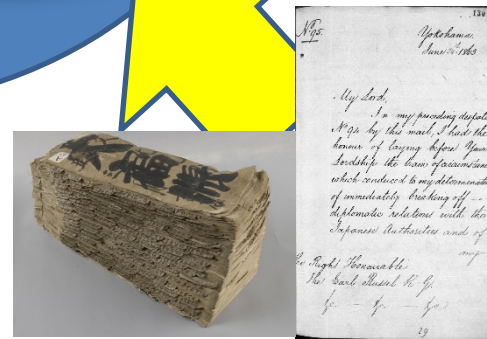 大福帳
130
Nº 95.
Yokohama
June 24th 1863
My Lord,
In my preceding despatc
Nº 94 by this mail, I had the
honour of laying before Your
Lordship the train of circumstanc
which conduced to my determinatio
of immediately breaking off
diplomatic relations with the
Japanese Authorities and of
he Right Honourable
The Earl Russel K. G.
&c. — &c. — &c.
19